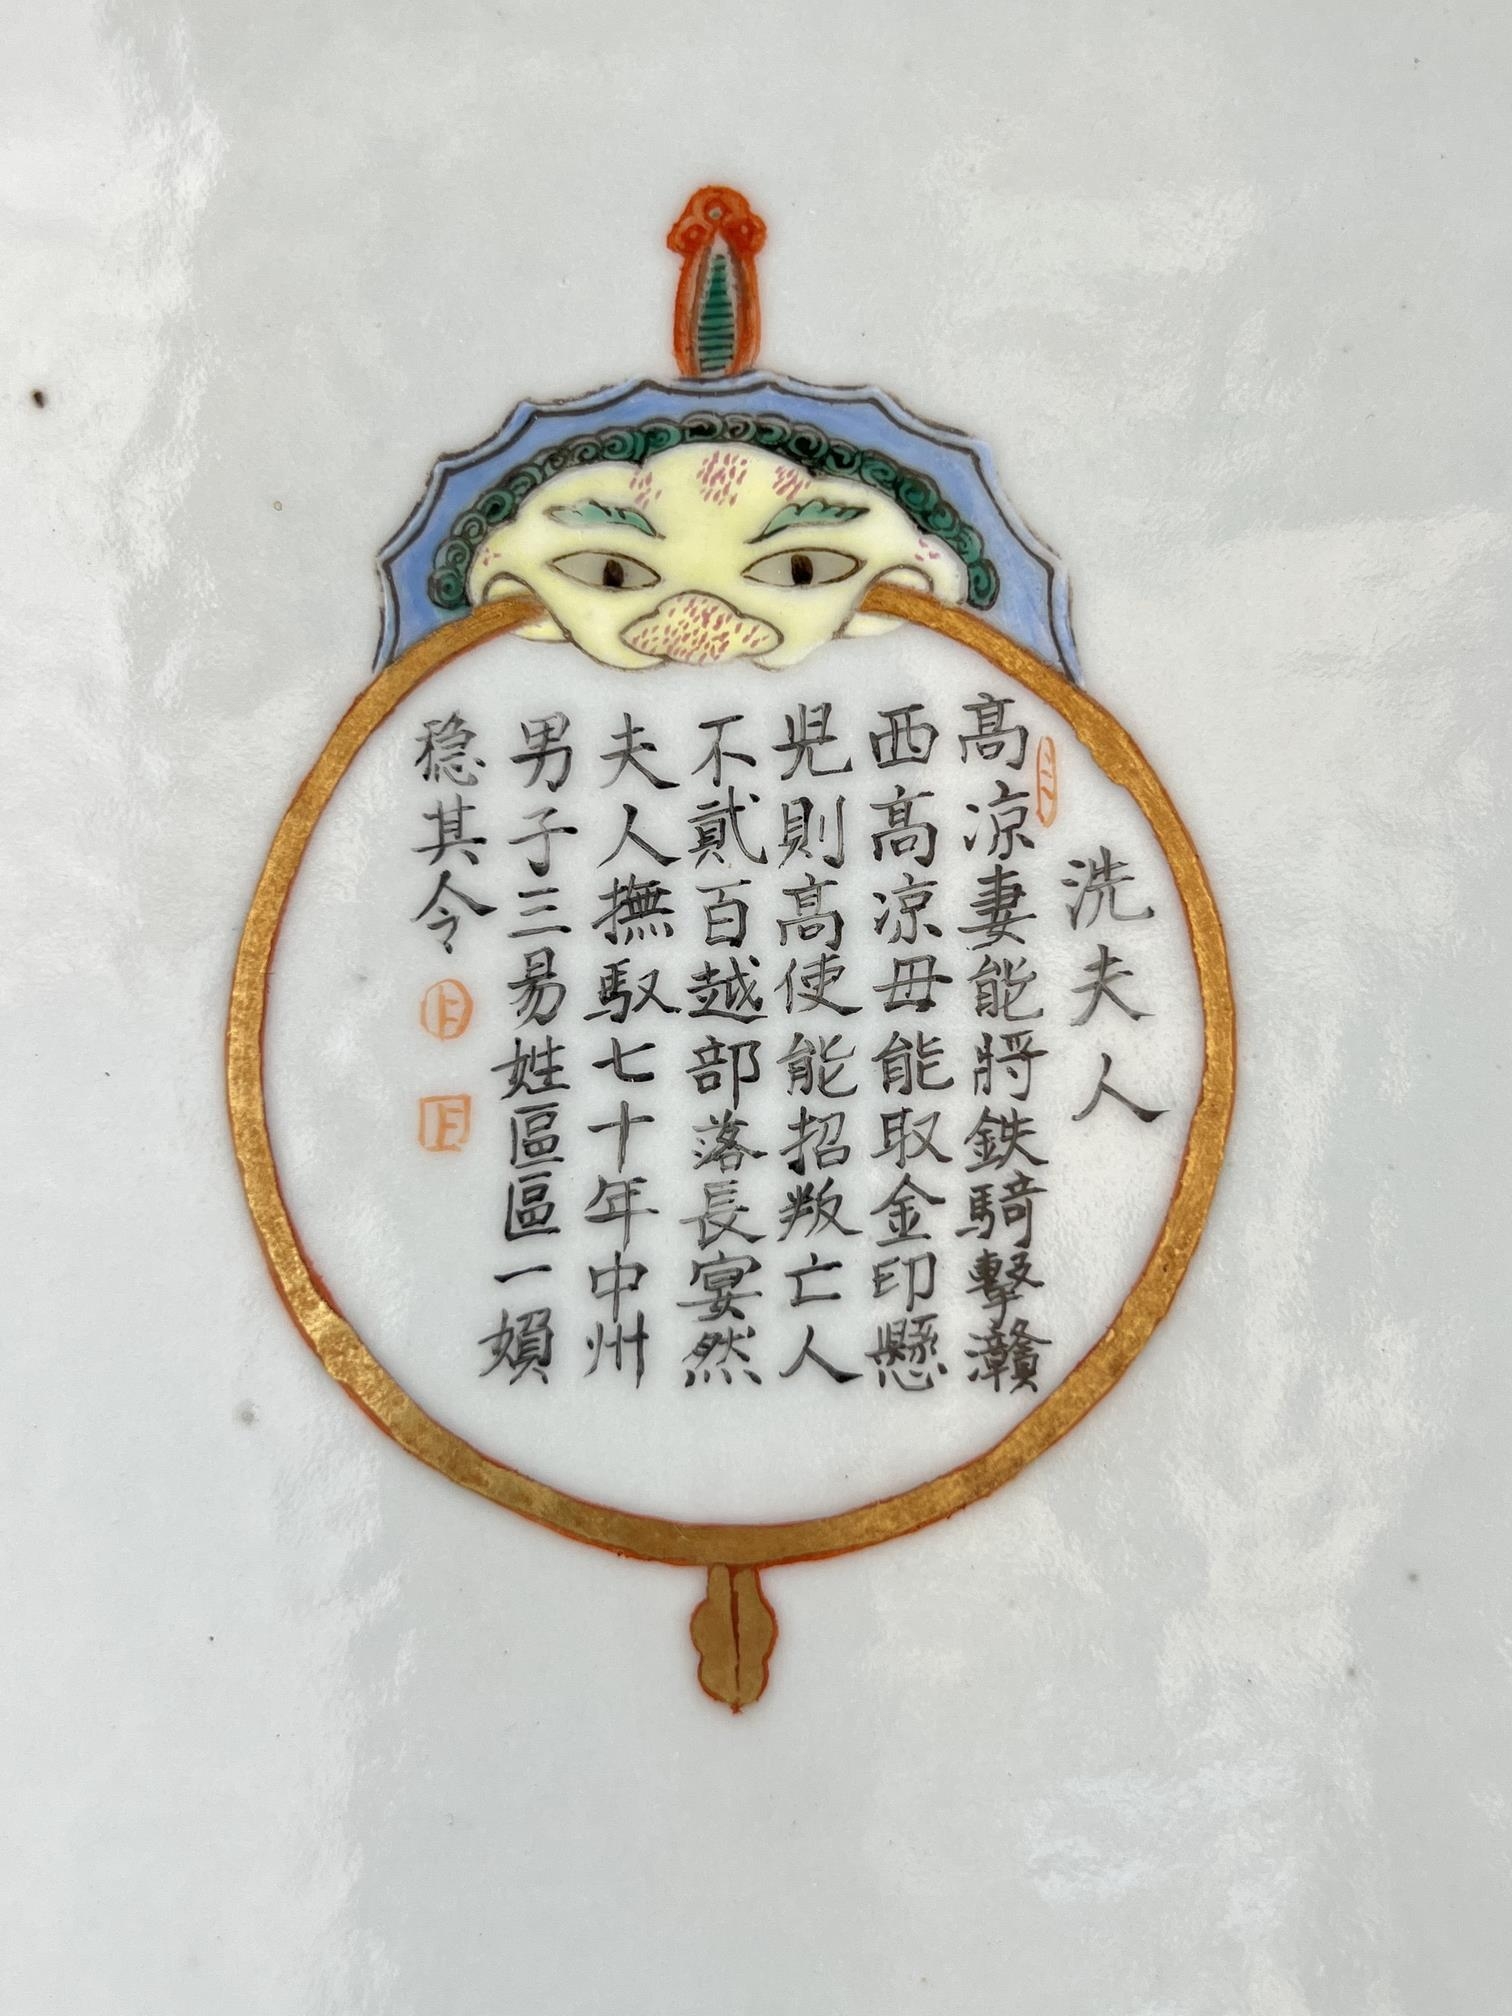 洗夫人
高凉妻能將鉄騎擊灨
西高凉毋能取金印懸
児則高使能招叛亡人
不貳百越部落長宴然
夫人撫馭七十年中州
男子三昜姓區區一媍
稳其令